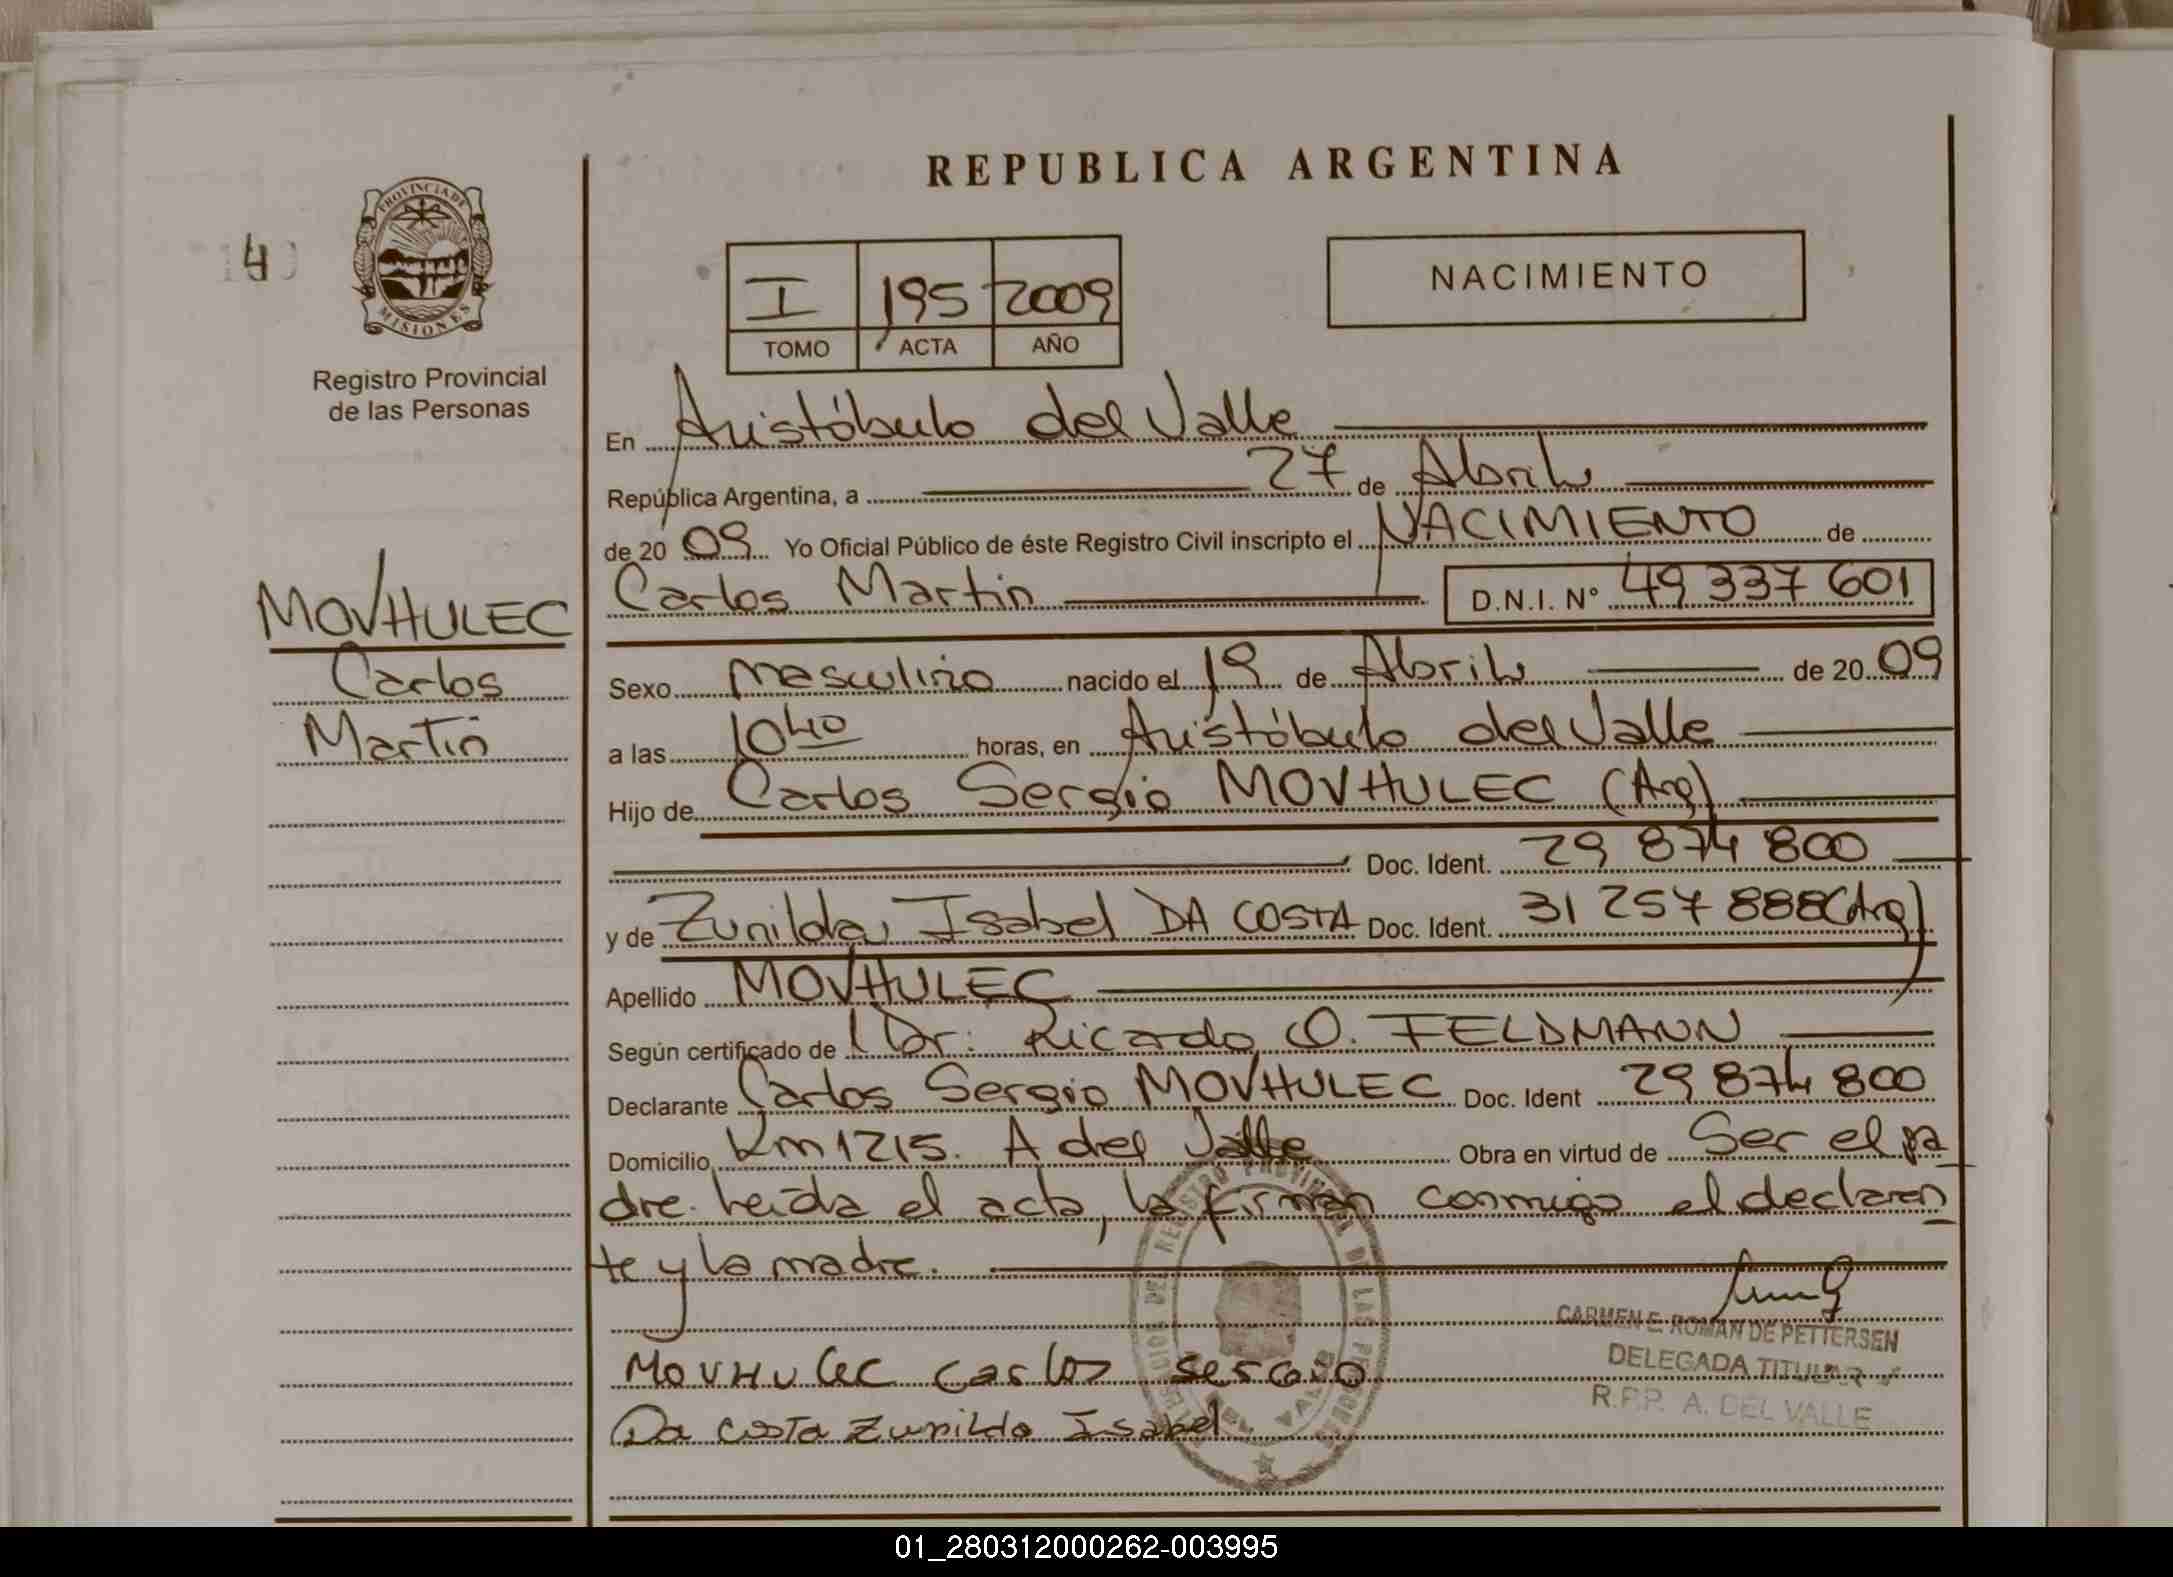 REPUBLICA ARGENTINA
PROVINCIA DE
MISIONES
Registro Provincial
de las Personas
I 195 2009
TOMO ACTA AÑO
NACIMIENTO
En Aristóbulo del Valle
República Argentina, a 27 de Abril
de 20 09 Yo Oficial Público de éste Registro Civil inscripto el NACIMIENTO de
Carlos Martin D.N.I. N° 49 337 601
MOVHULEC
Carlos
Martin
Sexo masculino nacido el 19 de Abril de 20 09
a las 10 40 horas, en Aristóbulo del Valle
Hijo de Carlos Sergio MOVHULEC (Arg)
Doc. Ident. 29 874 800
y de Zunilda Isabel DA COSTA Doc. Ident. 31 257 888 (Arg)
Apellido MOVHULEC
Según certificado de Dr: Ricardo O. FELDMANN
Declarante Carlos Sergio MOVHULEC Doc. Ident 29 874 800
Domicilio Km 1215. A del Valle Obra en virtud de Ser el pa
dre. Leída el acta, la firman conmigo el declaran
te y la madre.
CARMEN E. ROMAN DE PETTERSEN
DELEGADA TITULAR
R.P.P. A. DEL VALLE
MOVHULEC Carlos Sergio
Da Costa Zunilda Isabel
01_280312000262-003995